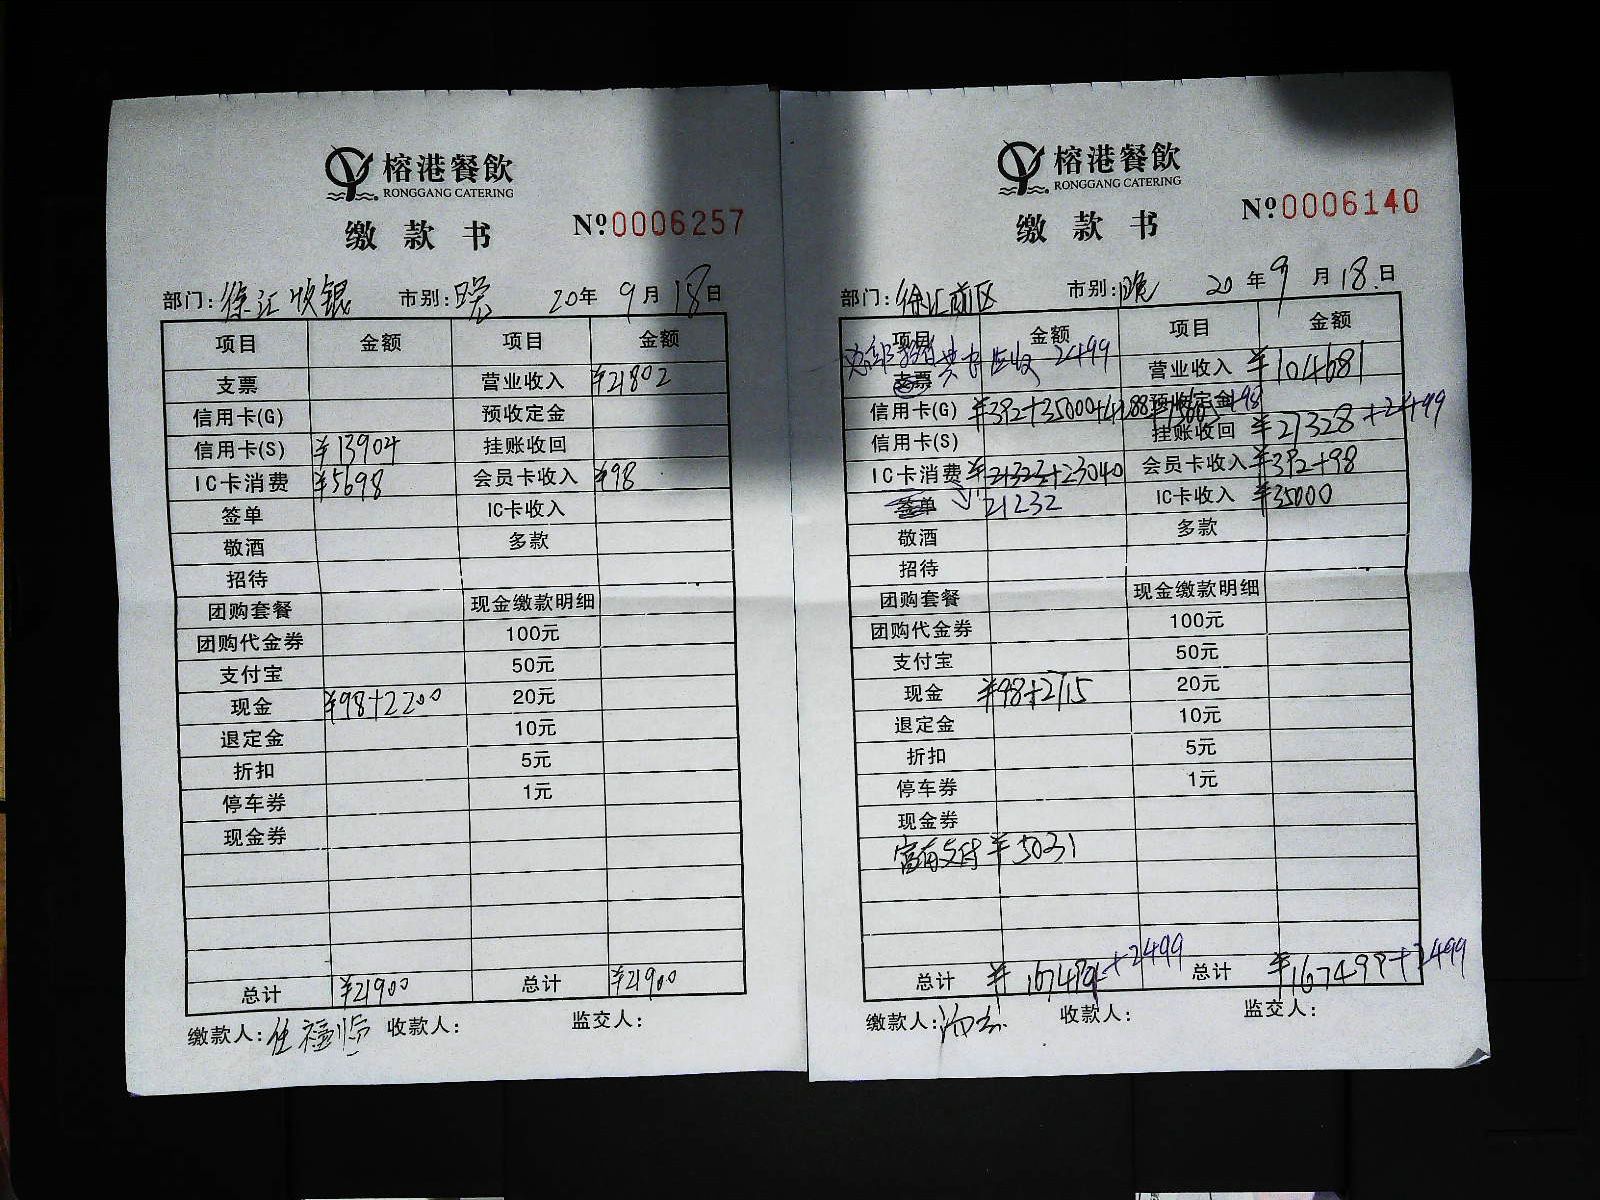 榕港餐飲
RONGGANG CATERING
缴款书
№0006257
部门:徐汇收银 市别: 20年9月18日
项目 金额 项目 金额
支票 营业收入 ¥21802
信用卡(G) 预收定金
信用卡(S) ¥13904 挂账收回
IC卡消费 ¥5698 会员卡收入 ¥98
签单 IC卡收入
敬酒 多款
招待
团购套餐 现金缴款明细
团购代金券 100元
支付宝 50元
现金 ¥98+2200 20元
退定金 10元
折扣 5元
停车券 1元
现金券
总计 ¥21900 总计 ¥21900
缴款人: 收款人: 监交人:
榕港餐飲
RONGGANG CATERING
缴款书
№0006140
部门:徐汇前区 市别:晚 20年9月18日
项目 金额 项目 金额
应收 2499
支票 营业收入 ¥104681
信用卡(G) ¥392+35000+ 预收定金
信用卡(S) 挂账收回 ¥21328+2499
IC卡消费 会员卡收入 ¥392+98
签单 21232 IC卡收入 ¥35000
敬酒 多款
招待
团购套餐 现金缴款明细
团购代金券 100元
支付宝 50元
现金 ¥98+2715 20元
退定金 10元
折扣 5元
停车券 1元
现金券
支付 ¥5031
总计 +2499 总计 ¥167499+2499
缴款人: 收款人: 监交人: